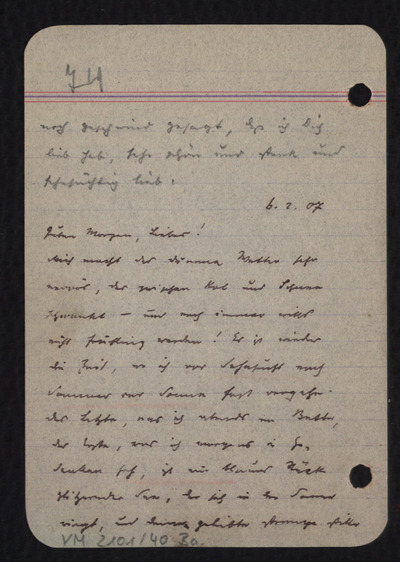 noch geschwind gesagt, dß ich Dich
lieb hab, sehr schön und stark und
sehnsüchtig lieb.
6. 2. 07
Guten Morgen, Lieber!
Mich macht das dumme Wetter sehr
nervös, das zwischen Kot und Schnee
schwankt – und noch immer will's
nicht Frühling werden! Es ist wieder
die Zeit, wo ich vor Sehnsucht nach
Sommer und Sonne fast vergehe.
Das Letzte, was ich abends im Bette,
das Erste, was ich morgens in Ge-
danken seh, ist ein blaues Stück
glitzernder See, der sich in der Sonne
wiegt, und deine geliebte
VM 2101/40 Ba.